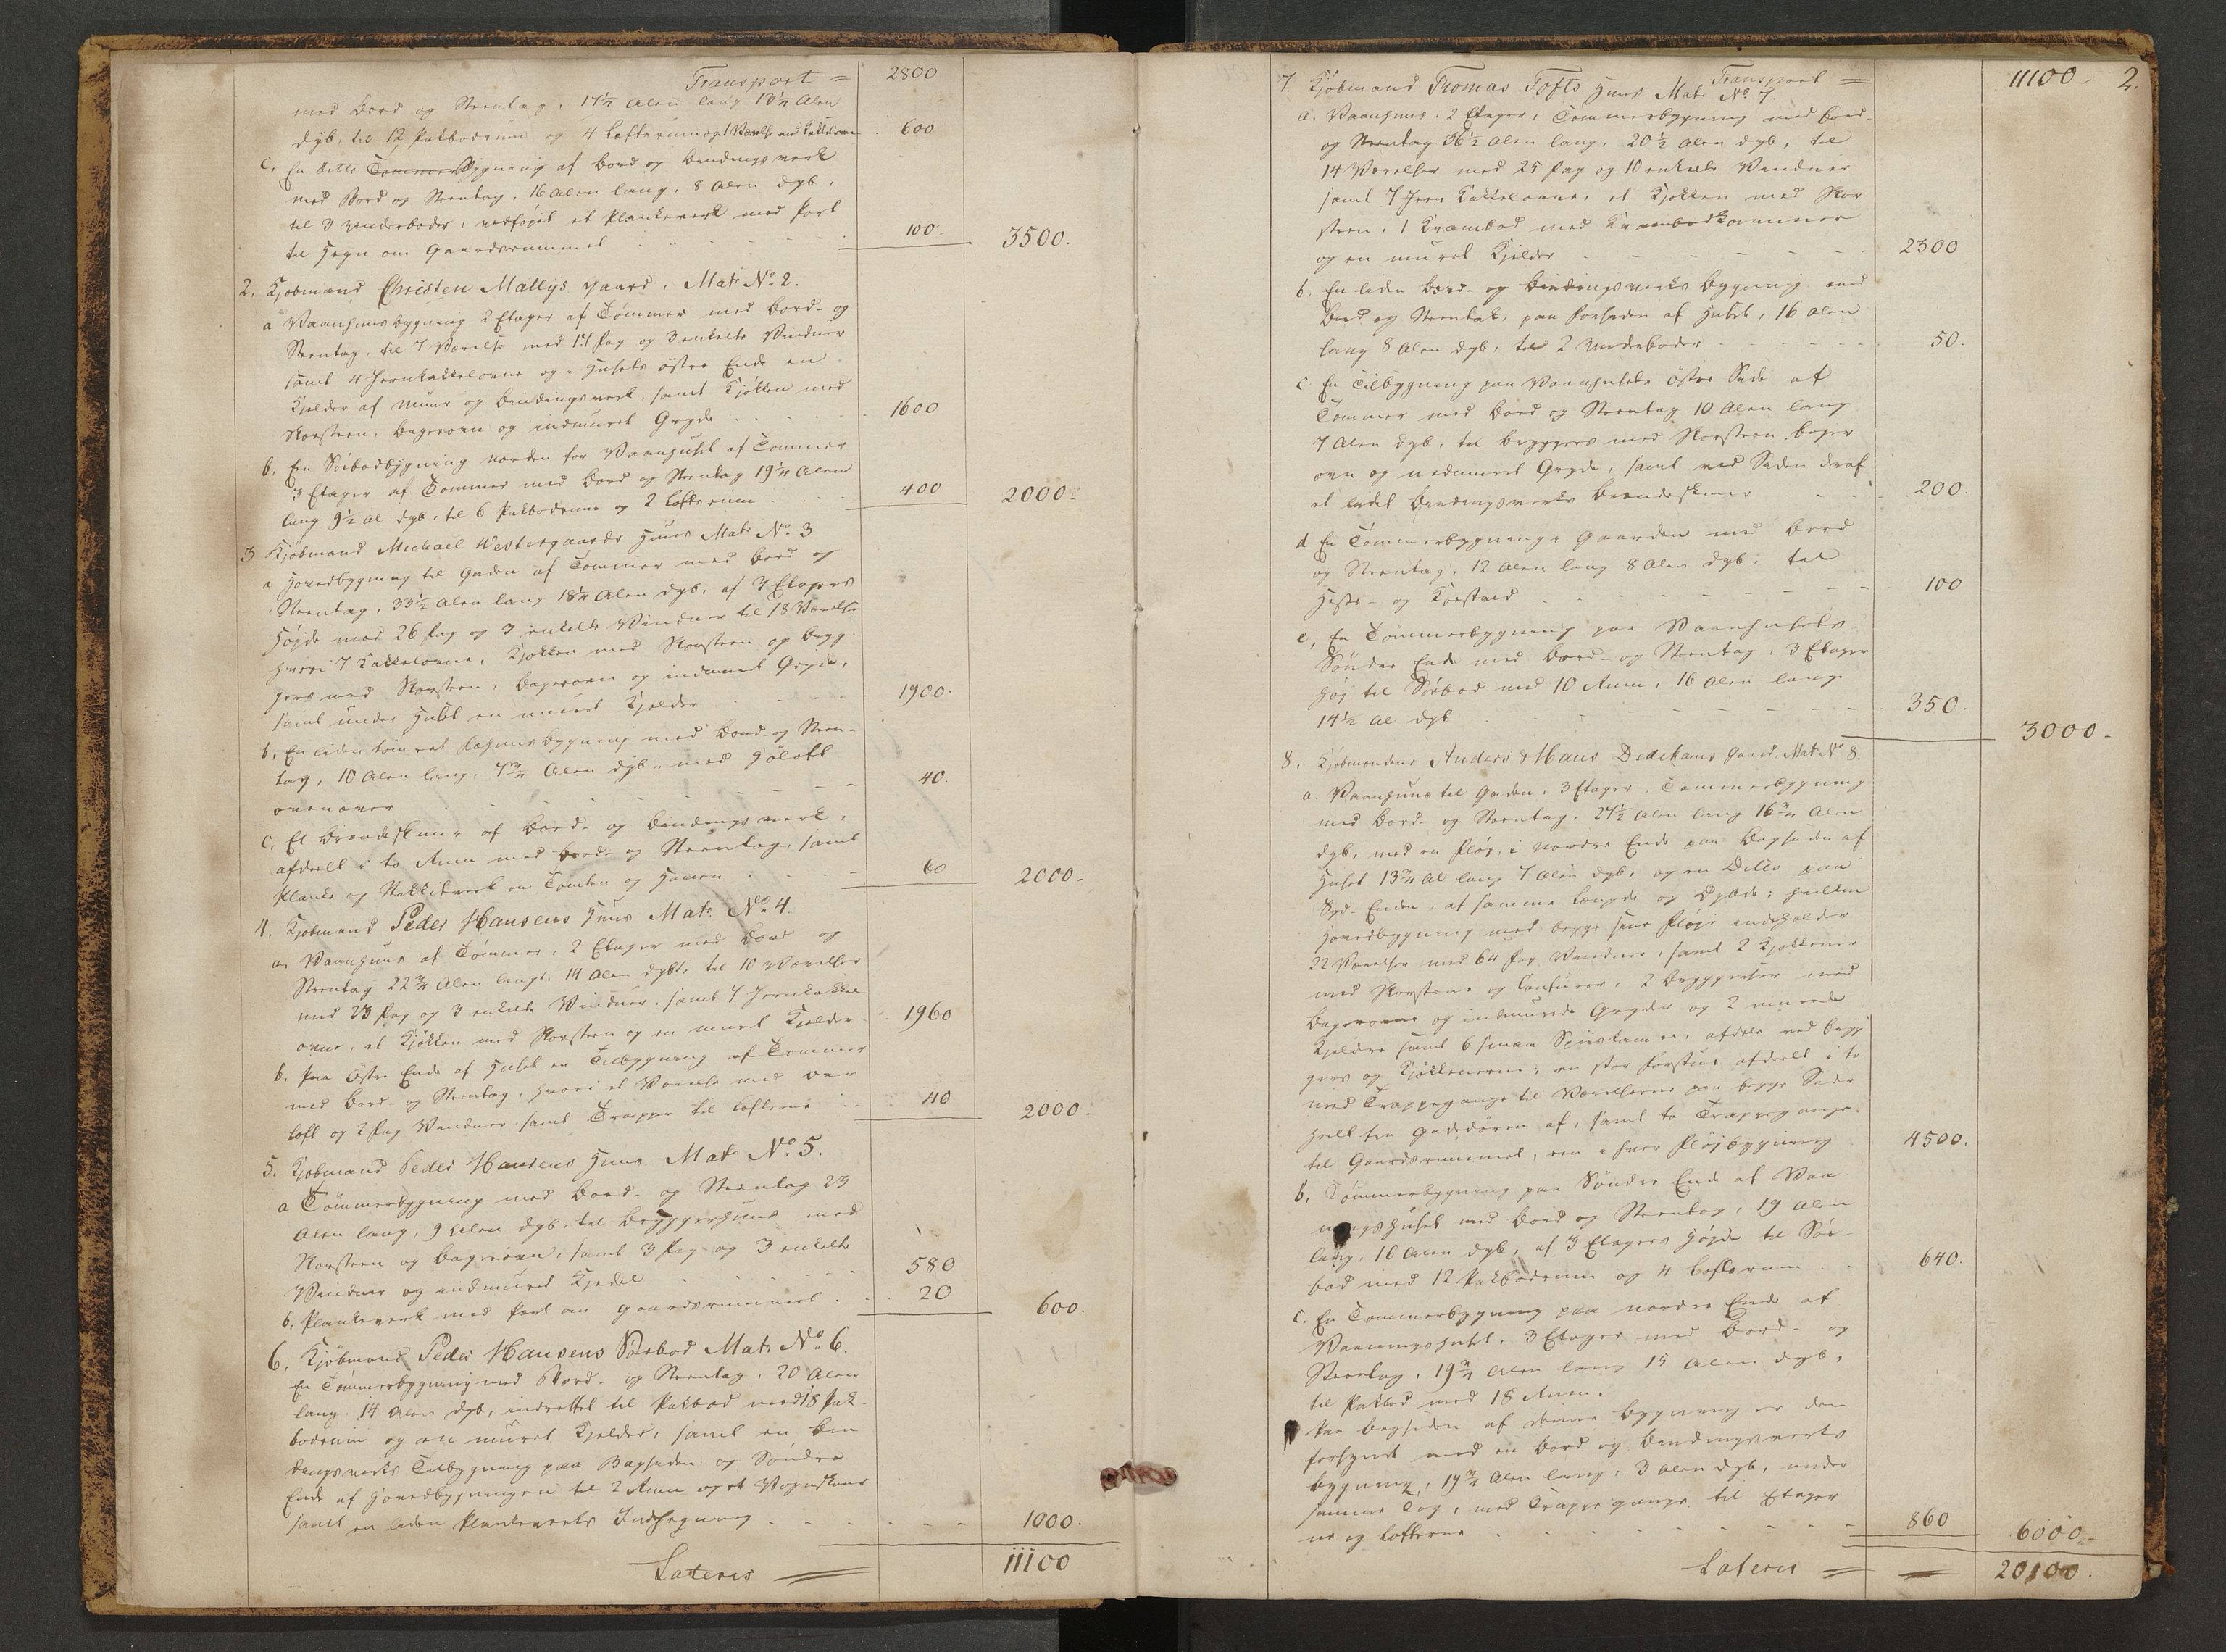 Transport = 2800
med Bord og Steentag, 17½ Alen lang 13¼ Alen
dyb, til 12 Pakbodrum og 4 Loftsrum og 1 Værelse med Kakkelovn 600
c, En ditto Tømmerbygning af Bord og Bindingsverk
med Bord og Steentag, 16 Alen lang, 8 Alen dyb,
til 3 Vedboder, vedføjet et Plankeverk med Port
til Hegn om Gaardsrummet 100. 3500.
2. Kjøbmand Christen Mallys gaard, Mat No. 2.
a Vaanhuusbygning 2 Etager af Tømmer med Bord- og
Steentag, til 7 Værelser med 14 Fag og 3 enkelte Vinduer
samt 4 Jernkakkelovne og i Husets østre Ende en
Kjelder af Muur og Bindingsverk, samt Kjøkken med
Skorsteen, Bagerovn og indmuret Gryde 1600
b. En Søebodbygning norden for Vaanhuset af Tømmer
3 Etager af Tømmer med Bord og Steentag 19¼ Alen
lang 9½ Al dyb, til 6 Pakbodrum og 2 Loftsrum 400 2000.
3 Kjøbmand Michael Westergaards Huus Mat No. 3
a Hovedbygning til Gaden af Tømmer med Bord og
Steentag, 33½ Alen lang 18¼ Alen dyb, af 3 Etagers
Højde med 26 Fag og 3 enkelte Vinduer til 18 Værelser
hvori 7 Kakkelovne, Kjøkken med Skorsteen og Bryg-
gers med Skorsteen, Bagerovn og indmuret Gryde,
samt under Huset en muret Kjelder 1900.
b. En liden tømret Fæhuusbygning med Bord- og Steen-
tag, 10 Alen lang, 7¾ Alen dyb, med Høloft
ovenover 40.
c, Et Brændeskuur af Bord- og Bindingsverk,
afdeelt i to Rum med Bord- og Steentag, samt
Planke og Stakkitverk om Tomten og Haven 60 2000.
4. Kjøbmand Peder Hansens Huus Mat. No. 4.
a. Vaanhuus af Tømmer, 2 Etager med Bord og
Steentag 22¾ Alen langt, 14 Alen dybt, til 10 Værelser
med 23 Fag og 3 enkelte Vinduer, samt 7 Jernkakkel-
ovne, et Kjøkken med Skorsteen og en muret Kjelder 1960
b. Paa østre Ende af Huset en Tilbygning af Tømmer
med Bord- og Steentag, hvori et Værelse med
Loft og 2 Fag Vinduer samt Trappe til Lofterne 40 2000.
5. Kjøbmand Peder Hansens Huus Mat. No. 5.
a Tømmerbygning med Bord- og Steentag 23
Alen lang, 9 Alen dyb, til Bryggerhuus med
Skorsteen og Bagerovn, samt 3 Fag og 3 enkelte
Vinduer og indmuret Kjedel 580
b, Plankeverk med Port om Gaardsrummet 20 600.
6. Kjøbmand Peder Hansens Søebod Mat. No. 6.
En Tømmerbygning med Bord- og Steentag, 20 Alen
lang, 14 Alen dyb, indrettet til Pakbod med 18 Pak-
bodrum og en muret Kjelder, samt en Bin-
dingsverks Tilbygning paa Bagsiden og Søndre
Ende af Hovedbygningen til 2 Rum og et Vognskuur
samt en liden Plankeverks Indhegning 1000.
Lateris = 11100
Transport = 11100 2.
7. Kjøbmand Thomas Tofts Huus Mat No. 7.
a. Vaanhuus, 2 Etager, Tømmerbygning med Bord-
og Steentag 36½ Alen lang, 20½ Alen dyb, til
14 Værelser med 25 Fag og 10 enkelte Vinduer
samt 7 Jern Kakkelovne, et Kjøkken med Skor
steen, 1 Krambod med Krambodkammer
og en muret Kjelder 2300
b. En liden Bord- og Bindingsverks Bygning med
Bord og Steentak, paa Forsiden af Huset, 16 Alen
lang 8 Alen dyb, til 2 Vedeboder 50.
c En Tilbygning paa Vaanhusets østre Side af
Tømmer med Bord og Steentag 10 Alen lang
7 Alen dyb, til Bryggers med Skorsteen, Bager
ovn og indmuret Gryde, samt ved Siden deraf
et lidet Bindingsverks Brændeskuur 200.
d En Tømmerbygning i Gaarden med Bord
og Steentag, 12 Alen lang 8 Alen dyb, til
Heste- og Kostald 100
e, En Tømmerbygning paa Vaanhusets
Søndre Ende med Bord- og Steentag, 3 Etager
høj til Søebod med 10 Rum, 16 Alen lang
14½ Al dyb 350. 3000.
8. Kjøbmændene Anders & Hans Dedekams Gaard. Mat No 8.
a. Vaanhuus til Gaden, 3 Etager, Tømmerbygning
med Bord- og Steentag, 27½ Alen lang 16¾ Alen
dyb, med en Fløj, i nordre Ende paa Bagsiden af
Huset 13¾ Al lang 7 Alen dyb, og en Ditto paa
Syd-Enden, af samme Længde og Dybde; hvilken
Hovedbygning med begge sine Fløje indeholder
22 Værelser med 64 Fag Vinduer, samt 2 Kjøkkener
med Skorstene og Comfurer, 2 Bryggerser med
Bagerovne og indmurede Gryder og 2 murede
Kjeldre samt 6 smaa Spiiskamre, afdelt ved Bryg
gers og Kjøkkenerne; en stor Forstue afdeelt i to
med Trappegange til Værelserne paa begge Sider
heelt fra Gadedøren af, samt to Trappegange
til Gaardsrummet, een i hver Fløjbygning 4500.
b, Tømmerbygning paa Søndre Ende af Vaa
ningshuset med Bord og Steentag, 19 Alen
lang, 16 Alen dyb, af 3 Etagers Højde til Søe-
bod med 12 Pakbodrum og 4 Loftsrum 640.
c, En Tømmerbygning paa nordre Ende af
Vaaningshuset, 3 Etager med Bord- og
Steentag, 19¾ Alen lang 15 Alen dyb,
til Pakbod med 18 Rum.
Paa Bagsiden af denne Bygning er den
forsynet med en Bord og Bindingsverks
bygning, 19¾ Alen lang, 3 Alen dyb, under
samme Tag, med Trappegange til Etager
ne og Lofterne 860 6000.
Lateris = 20100.